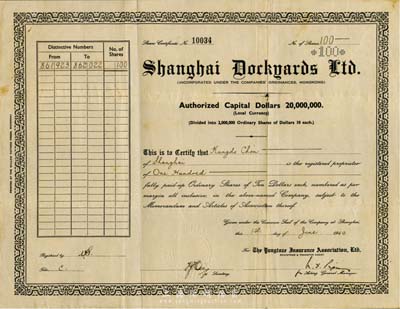 Share Certificate No 10034
No. of Shares 100
*100*
Shanghai Dockyards Ltd.
(INCORPORATED UNDER THE COMPANIES' ORDINANCES, HONGKONG)
Authorized Capital Dollars 20,000,000.
(Local Currency)
(Divided into 2,000,000 Ordinary Shares of Dollars 10 each.)
Distinctive Numbers
No. of Shares
From
To
100
This is to Certify that
of Shanghai is the registered proprietor
of One Hundred
fully paid-up Ordinary Shares of Ten Dollars each, numbered as per
margin all inclusive in the above-named Company, subject to the
Memorandum and Articles of Association thereof.
Given under the Common Seal of the Company at Shanghai,
this day of June 1940
For The Yangtsze Insurance Association, Ltd.
Secretary.
for Acting General Manager
Registered by
Folio C.